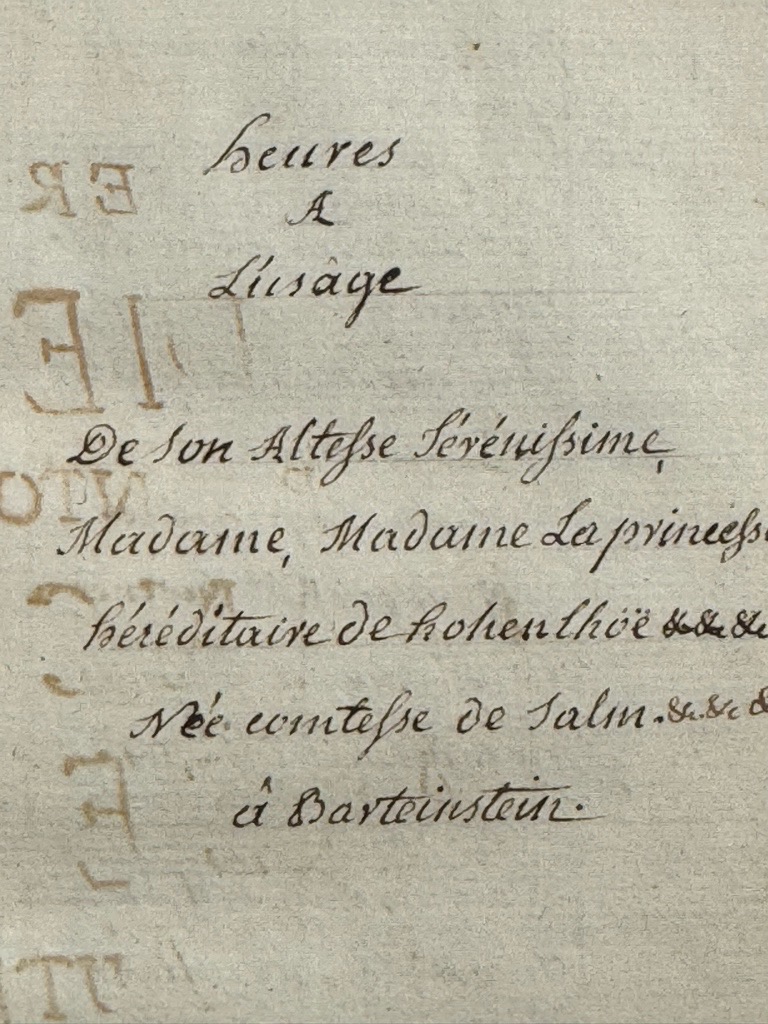 heures
A
L'usâge
De son Altesse Sérénissime,
Madame, Madame La princesse
héréditaire de hohenlhoë &&&
Née comtesse de Salm. &.&c &
â Barteinstein.